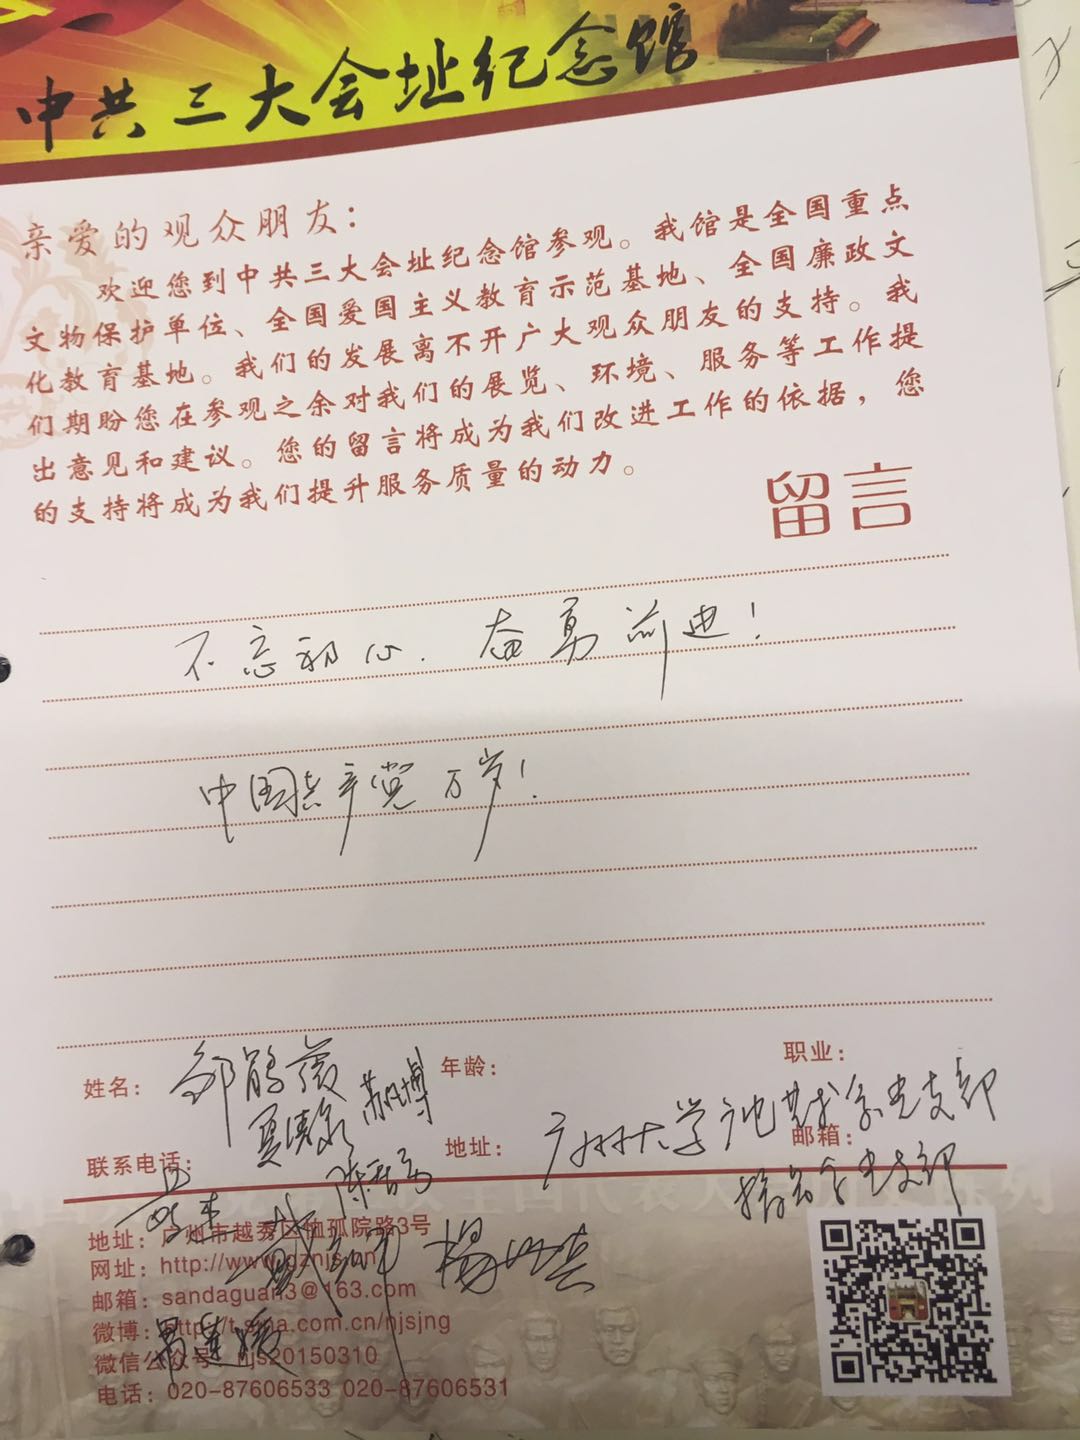 中共三大会址纪念馆
亲爱的观众朋友：
欢迎您到中共三大会址纪念馆参观。我馆是全国重点
文物保护单位、全国爱国主义教育示范基地、全国廉政文
化教育基地。我们的发展离不开广大观众朋友的支持。我
们期盼您在参观之余对我们的展览、环境、服务等工作提
出意见和建议。您的留言将成为我们改进工作的依据，您
的支持将成为我们提升服务质量的动力。
留言
不忘初心.奋勇前进！
中国共产党万岁！
姓名：
年龄：
职业：
苏凡博
联系电话：
地址：广州大学
党支部
邮箱：
党支部
地址：广州市越秀区恤孤院路3号
网址：http://www.gznjs.cn
邮箱：sandaguan3@163.com
微博：http://t.sina.com.cn/njsjng
微信公众号：njs20150310
电话：020-87606533 020-87606531